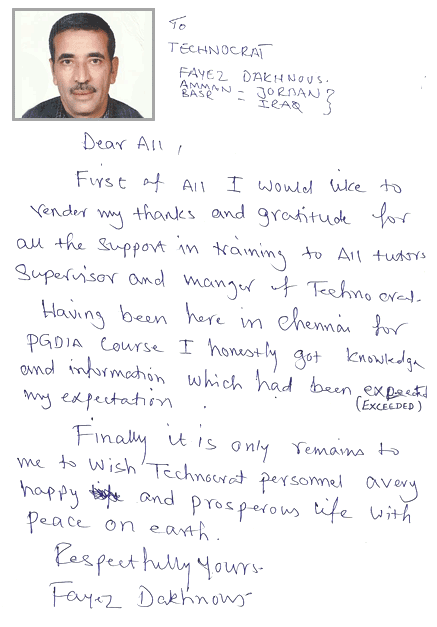 To
TECHNOCRAT
FAYEZ DAKHNOUS.
AMMAN = JORDAN }
BASR = IRAQ
Dear All,
First of All I would like to
render my thanks and gratitude for
all the support in training to All tutors
Supervisor and manger of Technocrat.
Having been here in Chennai for
PGDIA course I honestly got knowledge
and information which had been expected
my expectation. (EXCEEDED)
Finally it is only remains to
me to wish Technocrat personnel avery
happy and prosperous life with
peace on earth.
Respectfully yours.
Fayez Dakhnous